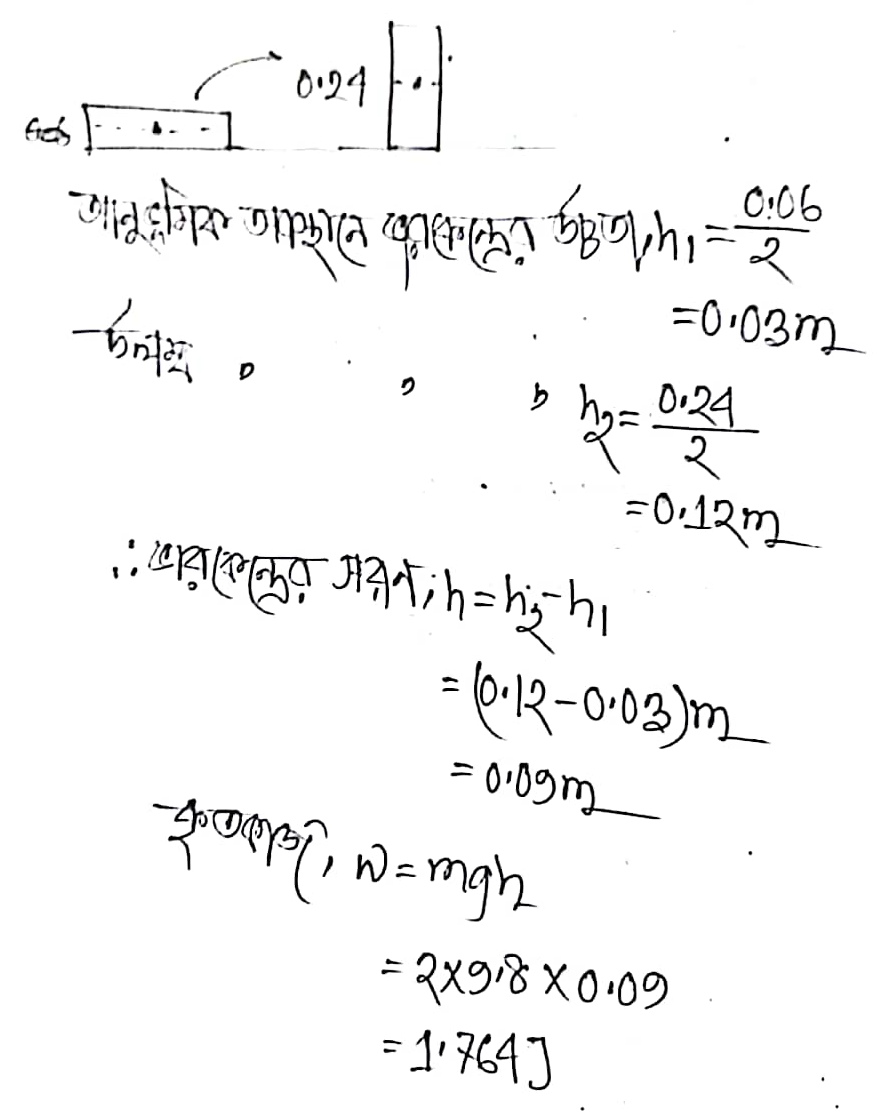 0.24
আনুভূমিক অবস্থানে ভরকেন্দ্রের উচ্চতা, h₁ = 0.06/2
= 0.03m
উলম্ব " " " h₂ = 0.24/2
= 0.12m
∴ ভরকেন্দ্রের সরণ, h = h₂ - h₁
= (0.12 - 0.03)m
= 0.09m
কৃতকাজ, W = mgh
= 2 × 9.8 × 0.09
= 1.764J